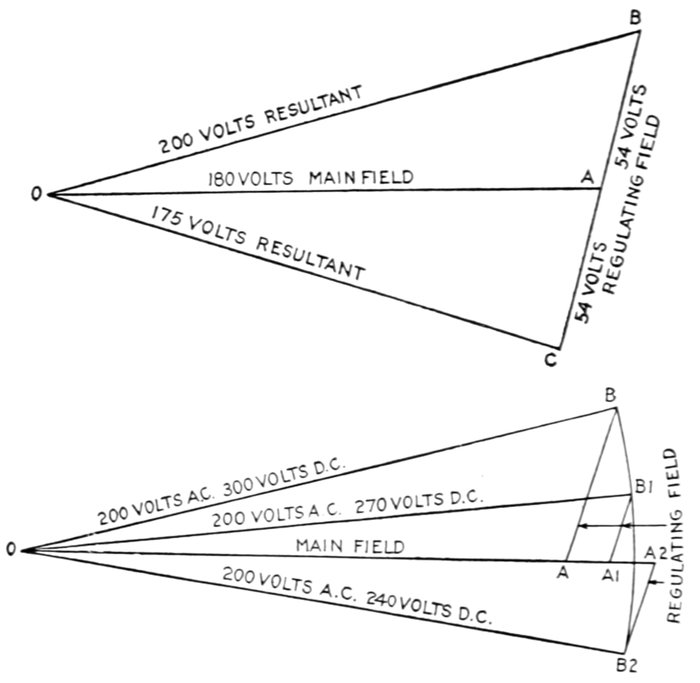 B
200 VOLTS RESULTANT
54 VOLTS
REGULATING FIELD
O
180 VOLTS MAIN FIELD
A
175 VOLTS RESULTANT
54 VOLTS
C
B
200 VOLTS A.C. 300 VOLTS D.C.
B1
200 VOLTS A.C. 270 VOLTS D.C.
REGULATING FIELD
O
MAIN FIELD
A
A1
A2
200 VOLTS A.C. 240 VOLTS D.C.
B2